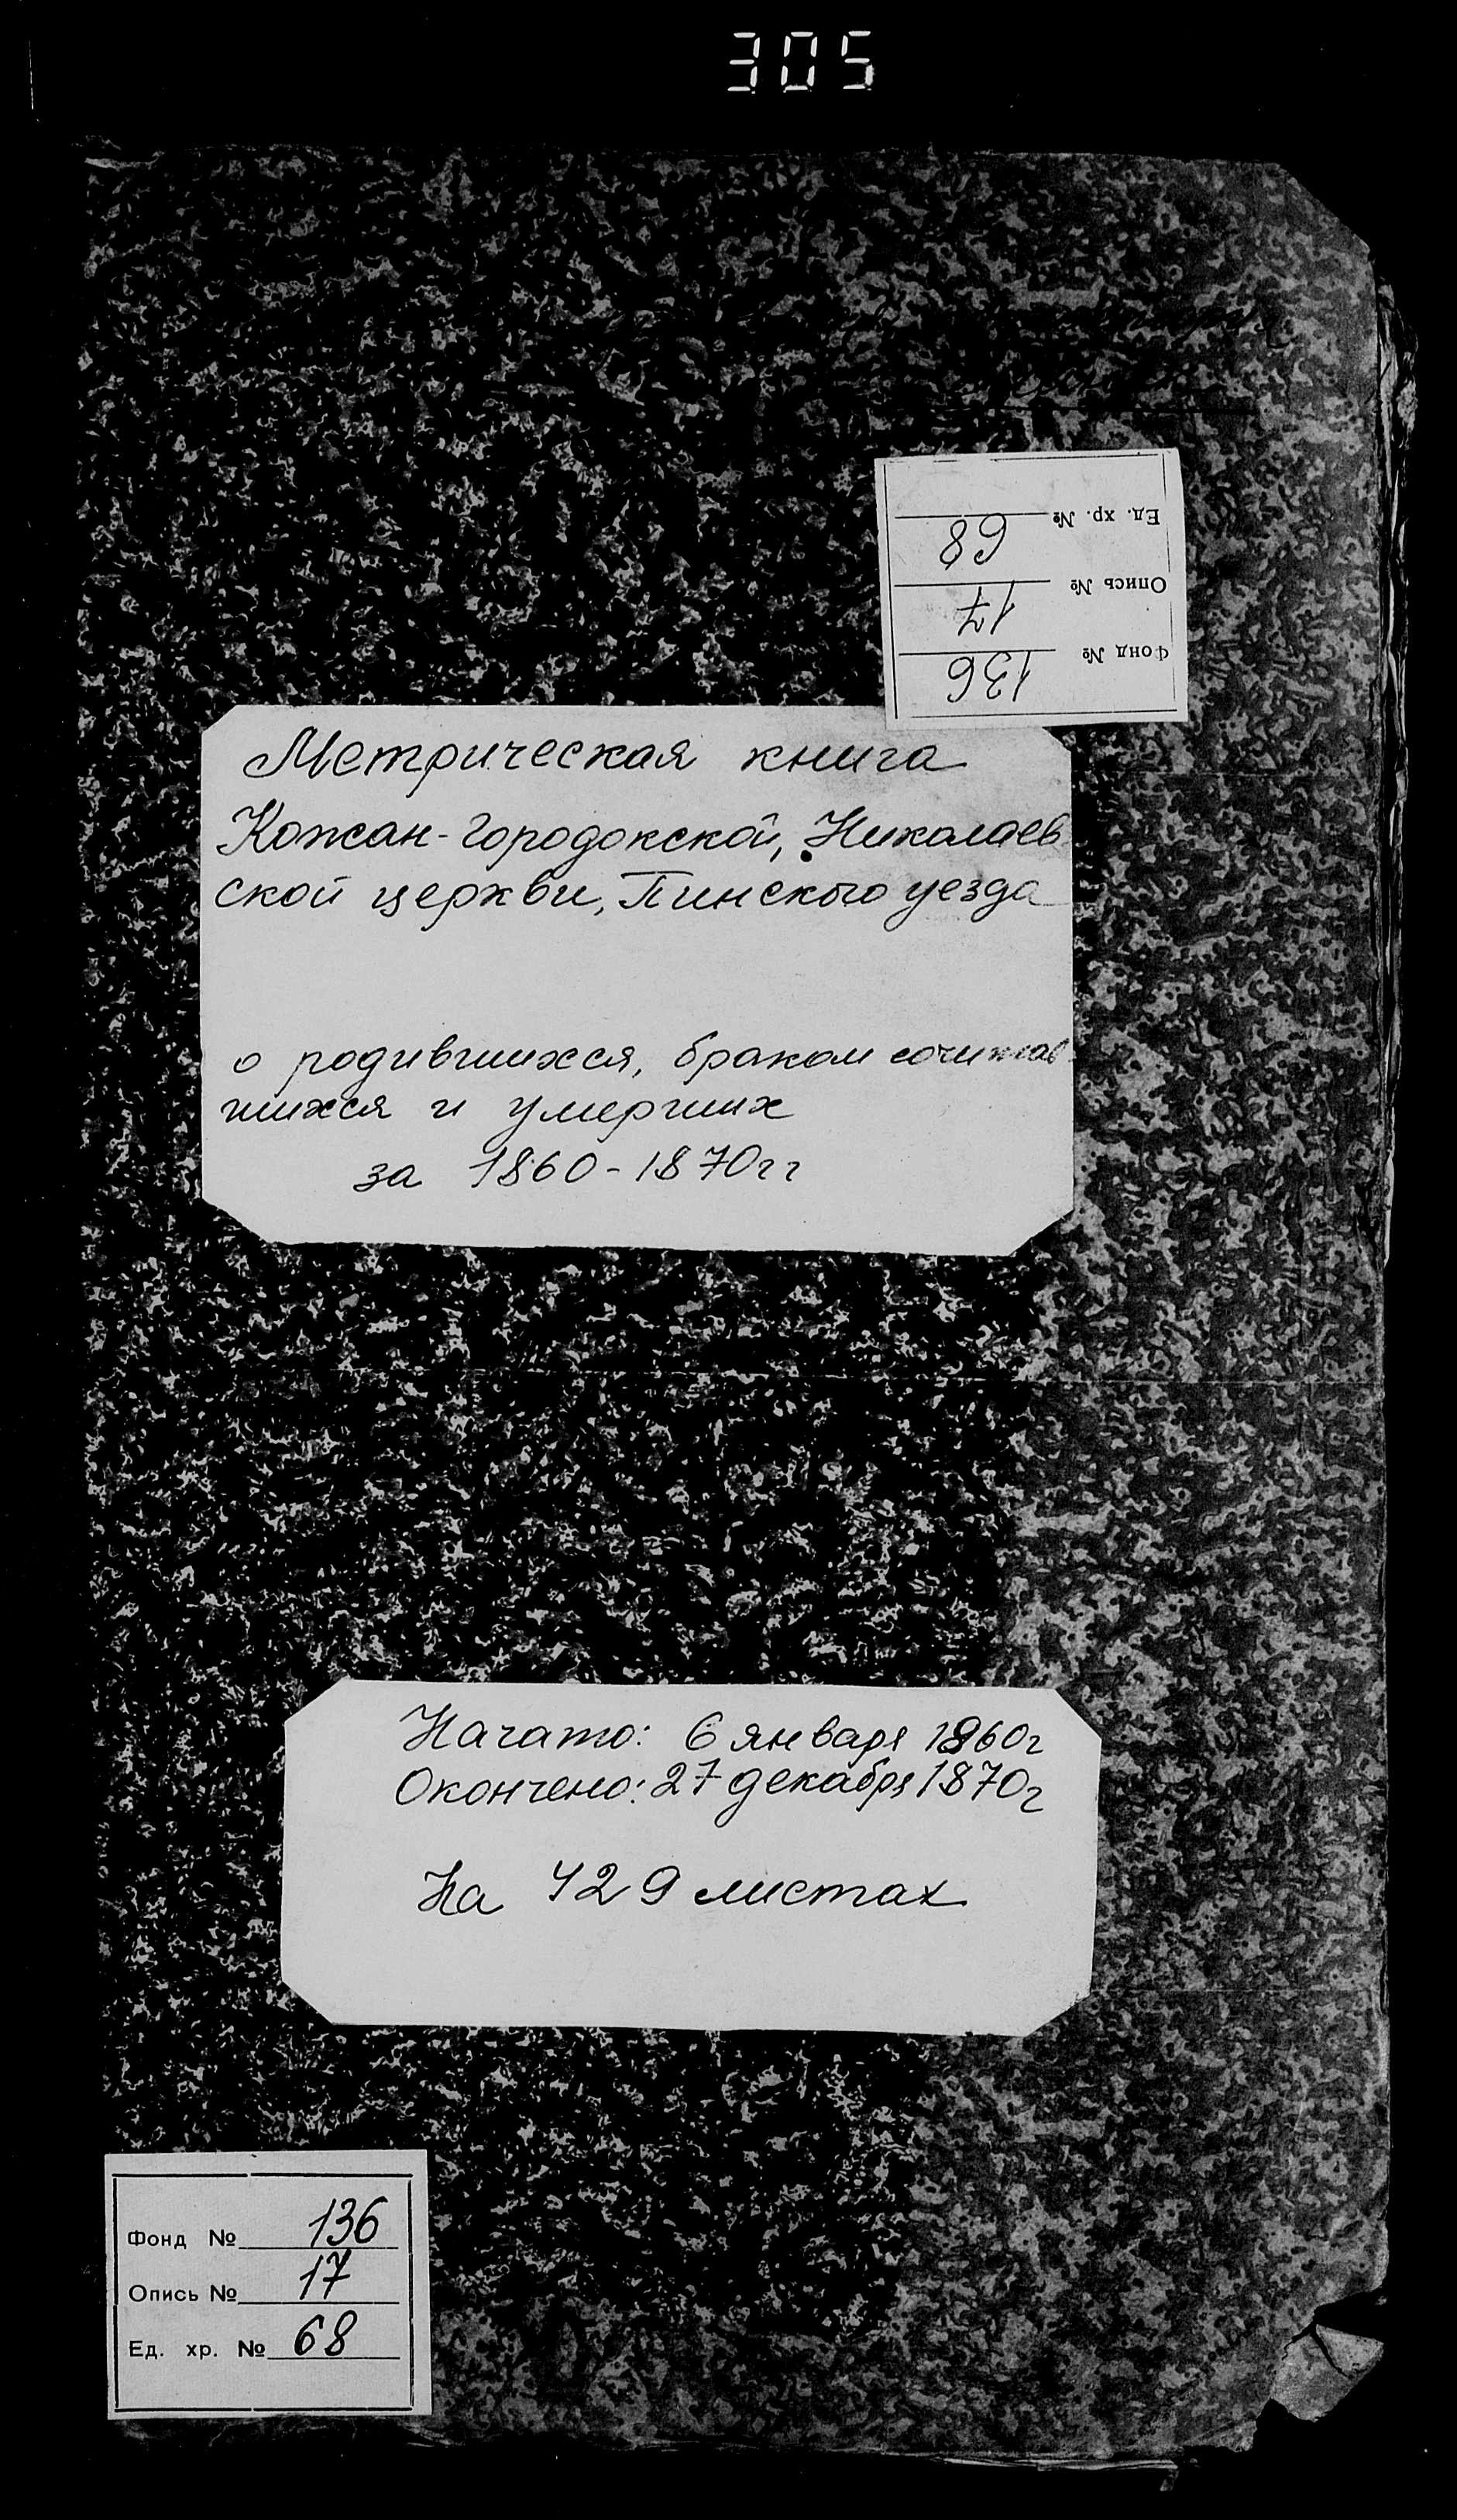 305
Ед. хр. № 68
Опись № 17
Фонд № 136
Метрическая книга
Кожан-Городокской, Николаев
ской церкви, Пинского уезда
о родившихся, браком сочитав
шихся и умерших
за 1860-1870гг
Начато: 6 января 1860г
Окончено: 27 декабря 1870г
На 429 листах
Фонд № 136
Опись № 17
Ед. хр. № 68